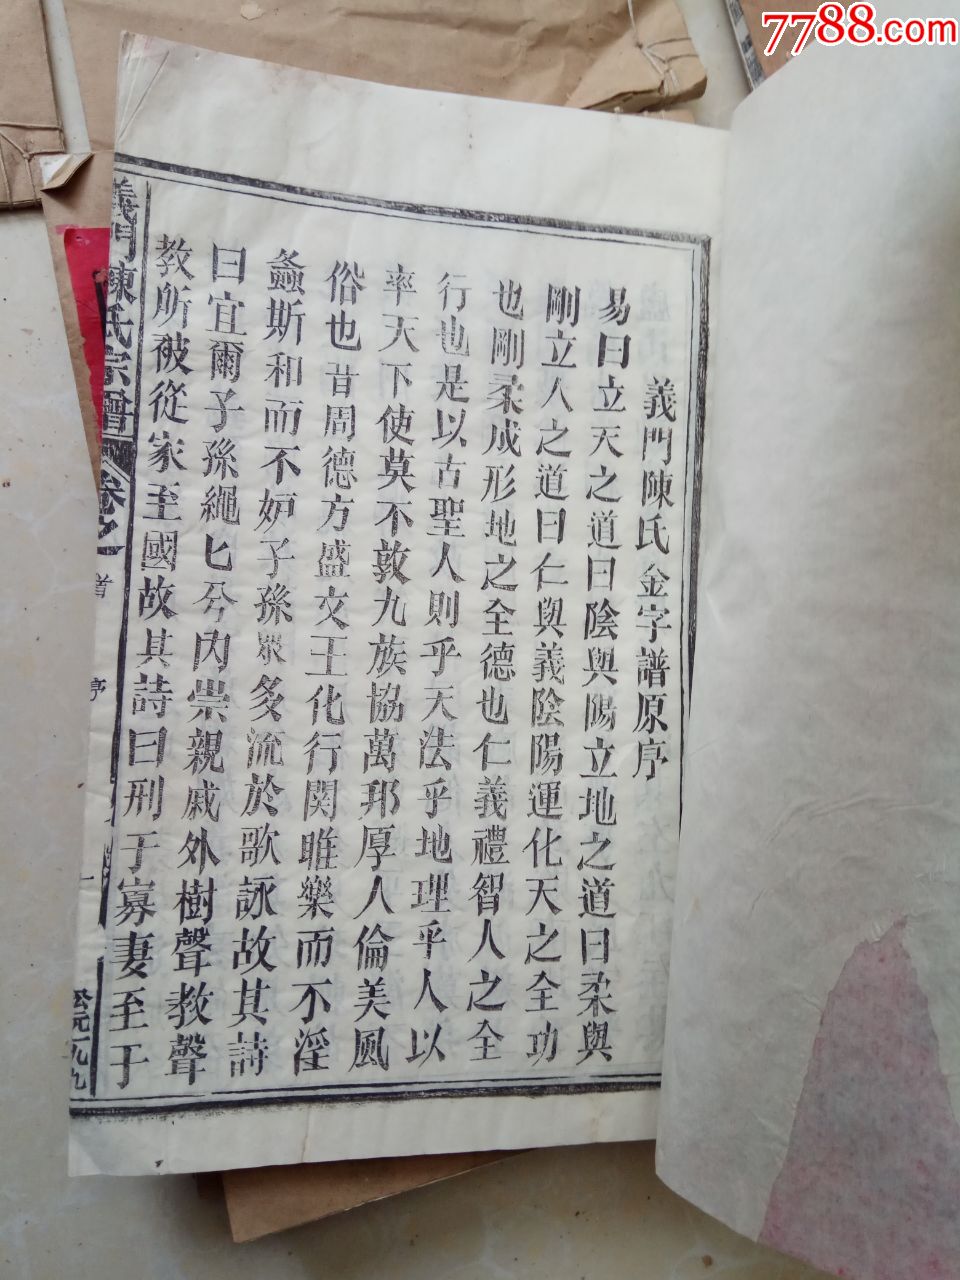 7788.com
義門陳氏金字譜原序
易曰立天之道曰陰與陽立地之道曰柔與
剛立人之道曰仁與義陰陽運化天之全功
也剛柔成形地之全德也仁義禮智人之全
行也是以古聖人則乎天法乎地理乎人以
率天下使莫不敦九族協萬邦厚人倫美風
俗也昔周德方盛文王化行関雎樂而不淫
螽斯和而不妒子孫眾多流於歌詠故其詩
曰宜爾子孫繩匕兮内崇親戚外樹聲教聲
教所被從家至國故其詩曰刑于寡妻至于
義門陳氏宗譜 卷之首 序 一 公元一九九